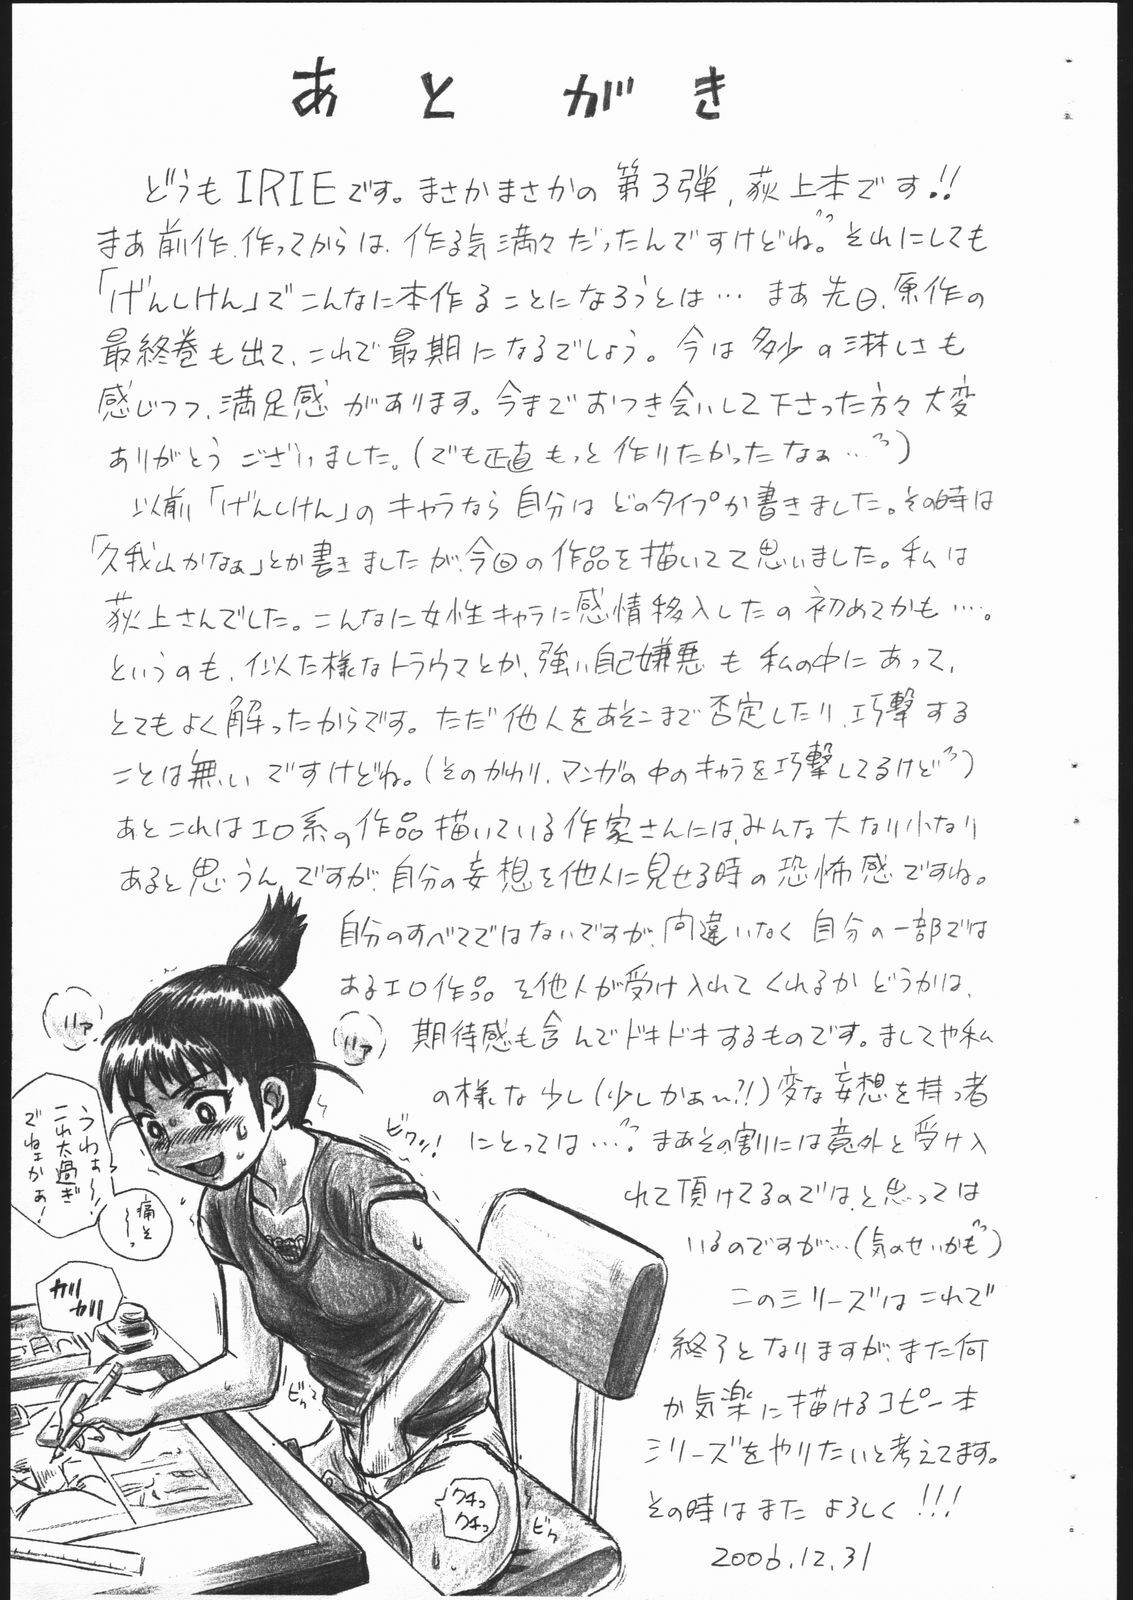 あとがき
どうもIRIEです。まさかまさかの第3弾、荻上本です!!
まあ前作、作ってからは、作る気満々だったんですけどね。それにしても
「げんしけん」でこんなに本作ることになろうとは… まあ先日、原作の
最終巻も出て、これで最期になるでしょう。今は多少の淋しさも
感じつつ、満足感があります。今までおつき会いして下さった方々大変
ありがとうございました。(でも正直もっと作りたかったなぁ…)
以前「げんしけん」のキャラなら自分はどのタイプか書きました。その時は
「久我山かなぁ」とか書きましたが、今回の作品を描いてて思いました。私は
荻上さんでした。こんなに女性キャラに感情移入したの初めてかも…。
というのも、似た様なトラウマとか、強い自己嫌悪も私の中にあって、
とてもよく解ったからです。ただ他人をあそこまで否定したり、攻撃する
ことは無いですけどね。(そのかわり、マンガの中のキャラを攻撃してるけど)
あとこれはエロ系の作品描いている作家さんには、みんな大なり小なり
あると思うんですが、自分の妄想を他人に見せる時の恐怖感ですね。
自分のすべてではないですが、間違いなく自分の一部では
あるエロ作品を他人が受け入れてくれるかどうかは、
期待感も含んでドキドキするものです。ましてや私
の様な少し(少しかぁ〜?!)変な妄想を持つ者
にとっては…。まあその割には意外と受け入
れて頂けてるのでは、と思っては
いるのですが…(気のせいかも)
このシリーズはこれで
終了となりますが、また何
か気楽に描けるコピー本
シリーズをやりたいと考えてます。
その時はまたよろしく!!!
2006.12.31
ハァ
ハァ
うわぁ〜!
これ太過ぎ
でねェかぁ!
痛そ
〜〜っ
カリ
カリ
ビクッ!
ビクッ
クチュッ
クチュッ
ビクッ